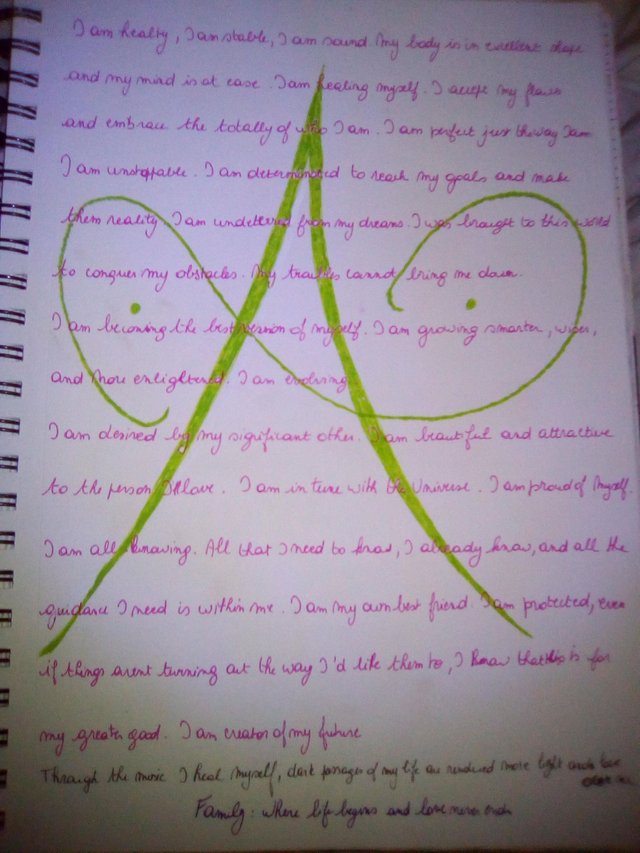 I am healty, I am stable, I am sound. My body is in excellent shape
and my mind is at ease. I am healing myself. I accept my flaws
and embrace the totally of who I am. I am perfect just the way I am
I am unstoppable. I am determinated to reach my goals and make
them reality. I am undettered from my dreams. I was brought to this world
to conquer my obstacles. My troubles cannot bring me down.
I am becoming the best version of myself. I am growing smarter, wiser,
and more enlightened. I am evolving
I am desired by my significant other. I am beautiful and attractive
to the person I love. I am in tune with the Universe. I am proud of myself.
I am all knowing. All that I need to know, I already know, and all the
guidance I need is within me. I am my own best friend. I am protected, even
if things arent turning out the way I'd like them to, I know that this is for
my greater good. I am creator of my future
Through the music I heal myself, dark passages of my life are rendered more light and
Family: where life begins and love never ends